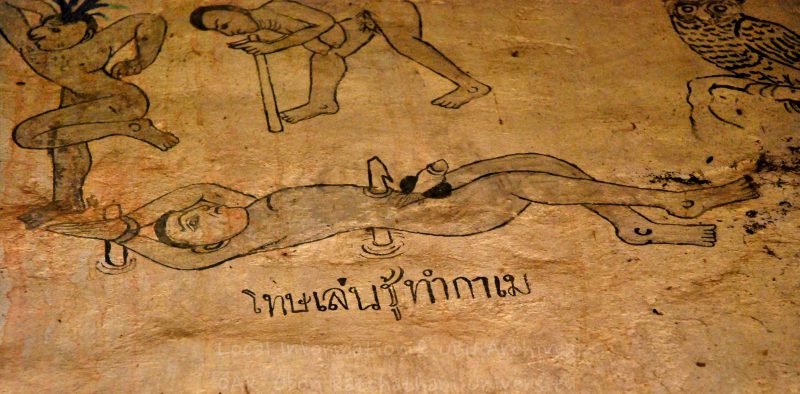 โทษเล่นชู้ทำกาเม
Local Information & UBU Archives
OAR Ubon Ratchathani University